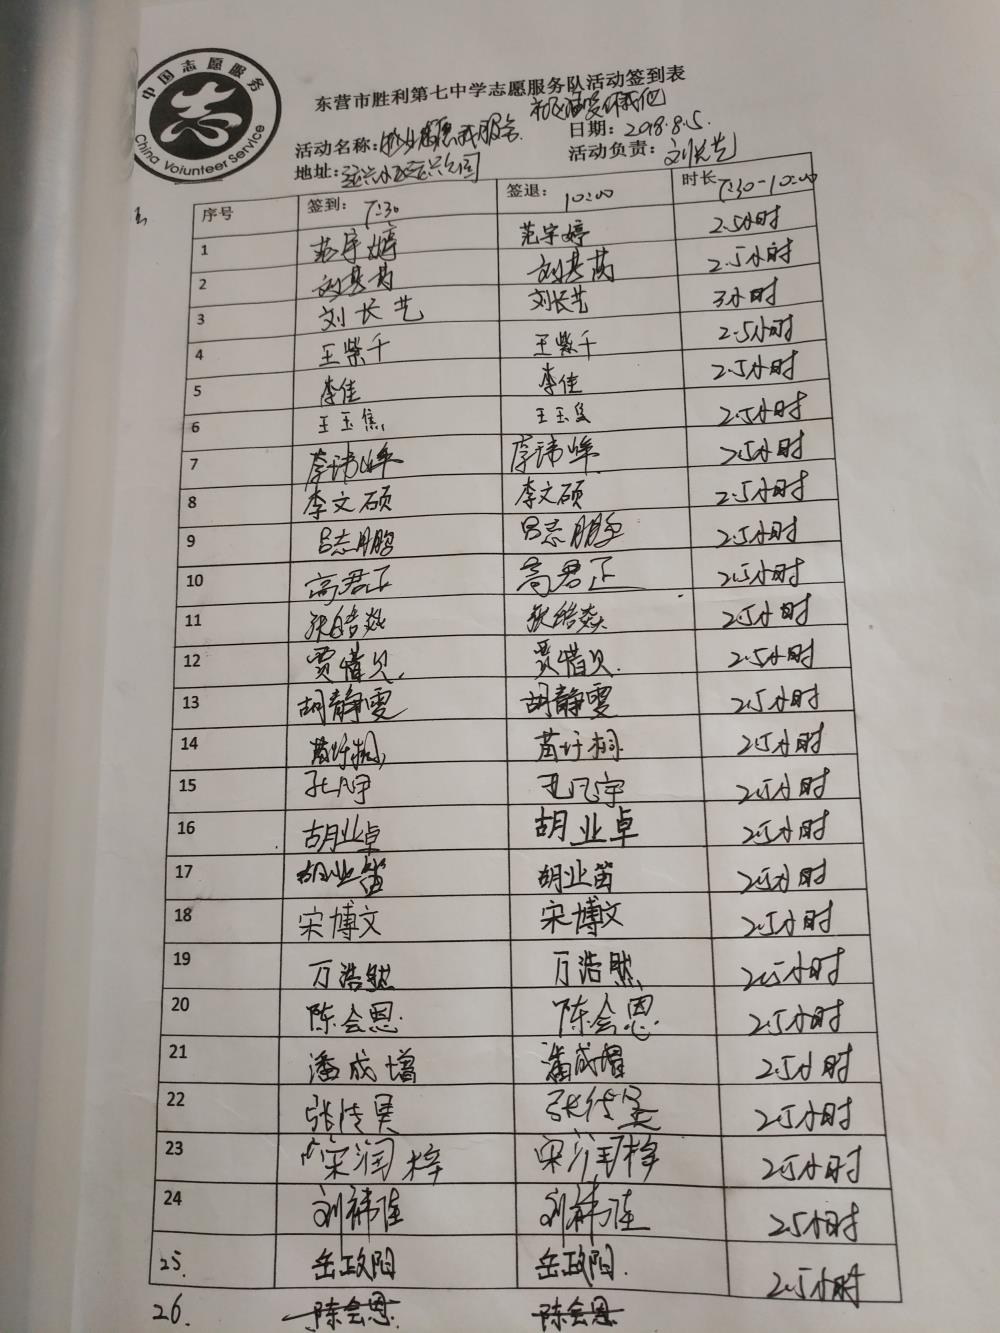 中国志愿服务
China Volunteer Service
东营市胜利第七中学志愿服务队活动签到表
活动名称: 日期: 2018.8.5.
地址: 活动负责: 刘长艺
序号 签到: 7:30 签退: 10:00 时长 7:30-10:00
1 范宇婷 范宇婷 2.5小时
2 2.5小时
3 刘长艺 刘长艺 3小时
4 王紫千 王紫千 2.5小时
5 李佳 李佳 2.5小时
6 王玉焦 王玉焦 2.5小时
7 李玮峰 李玮峰 2.5小时
8 李文硕 李文硕 2.5小时
9 吕志鹏 吕志鹏 2.5小时
10 高君正 高君正 2.5小时
11 2.5小时
12 贾惜贝. 贾惜贝. 2.5小时
13 胡静雯 胡静雯 2.5小时
14 2.5小时
15 孔凡宇 孔凡宇 2.5小时
16 胡业卓 胡业卓 2.5小时
17 胡业笛 胡业笛 2.5小时
18 宋博文 宋博文 2.5小时
19 万浩然 万浩然 2.5小时
20 陈会恩. 陈会恩. 2.5小时
21 潘成增 潘成增 2.5小时
22 2.5小时
23 宋润梓 宋润梓 2.5小时
24 2.5小时
25. 岳政阳 岳政阳. 2.5小时
26. 陈会恩. 陈会恩